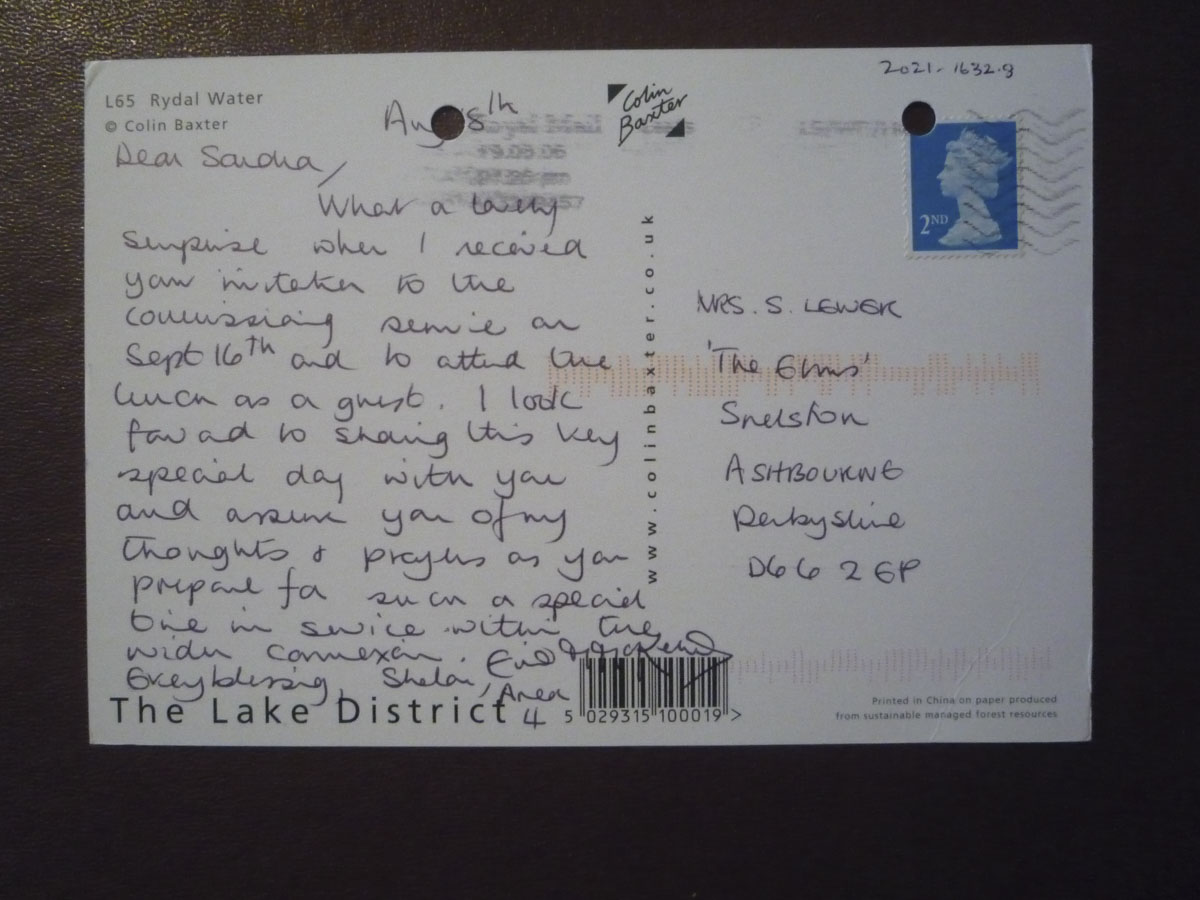 2021-1632.9
L65 Rydal Water
© Colin Baxter
Colin
Baxter
Aug 8th
Dear Sandra,
What a lovely
surprise when I received
your invitation to the
commissioning service on
Sept 16th and to attend the
lunch as a guest. I look
forward to sharing this very
special day with you
and assure you of my
thoughts & prayers as you
prepare for such a special
time in service within the
wider connexion.
Every blessing, Area
4
The Lake District
5 029315 100019 >
www.colinbaxter.co.uk
2ND
MRS. S. LEWER
'The Elms'
Snelston
ASHBOURNE
Derbyshire
DE6 2EP
Printed in China on paper produced
from sustainable managed forest resources